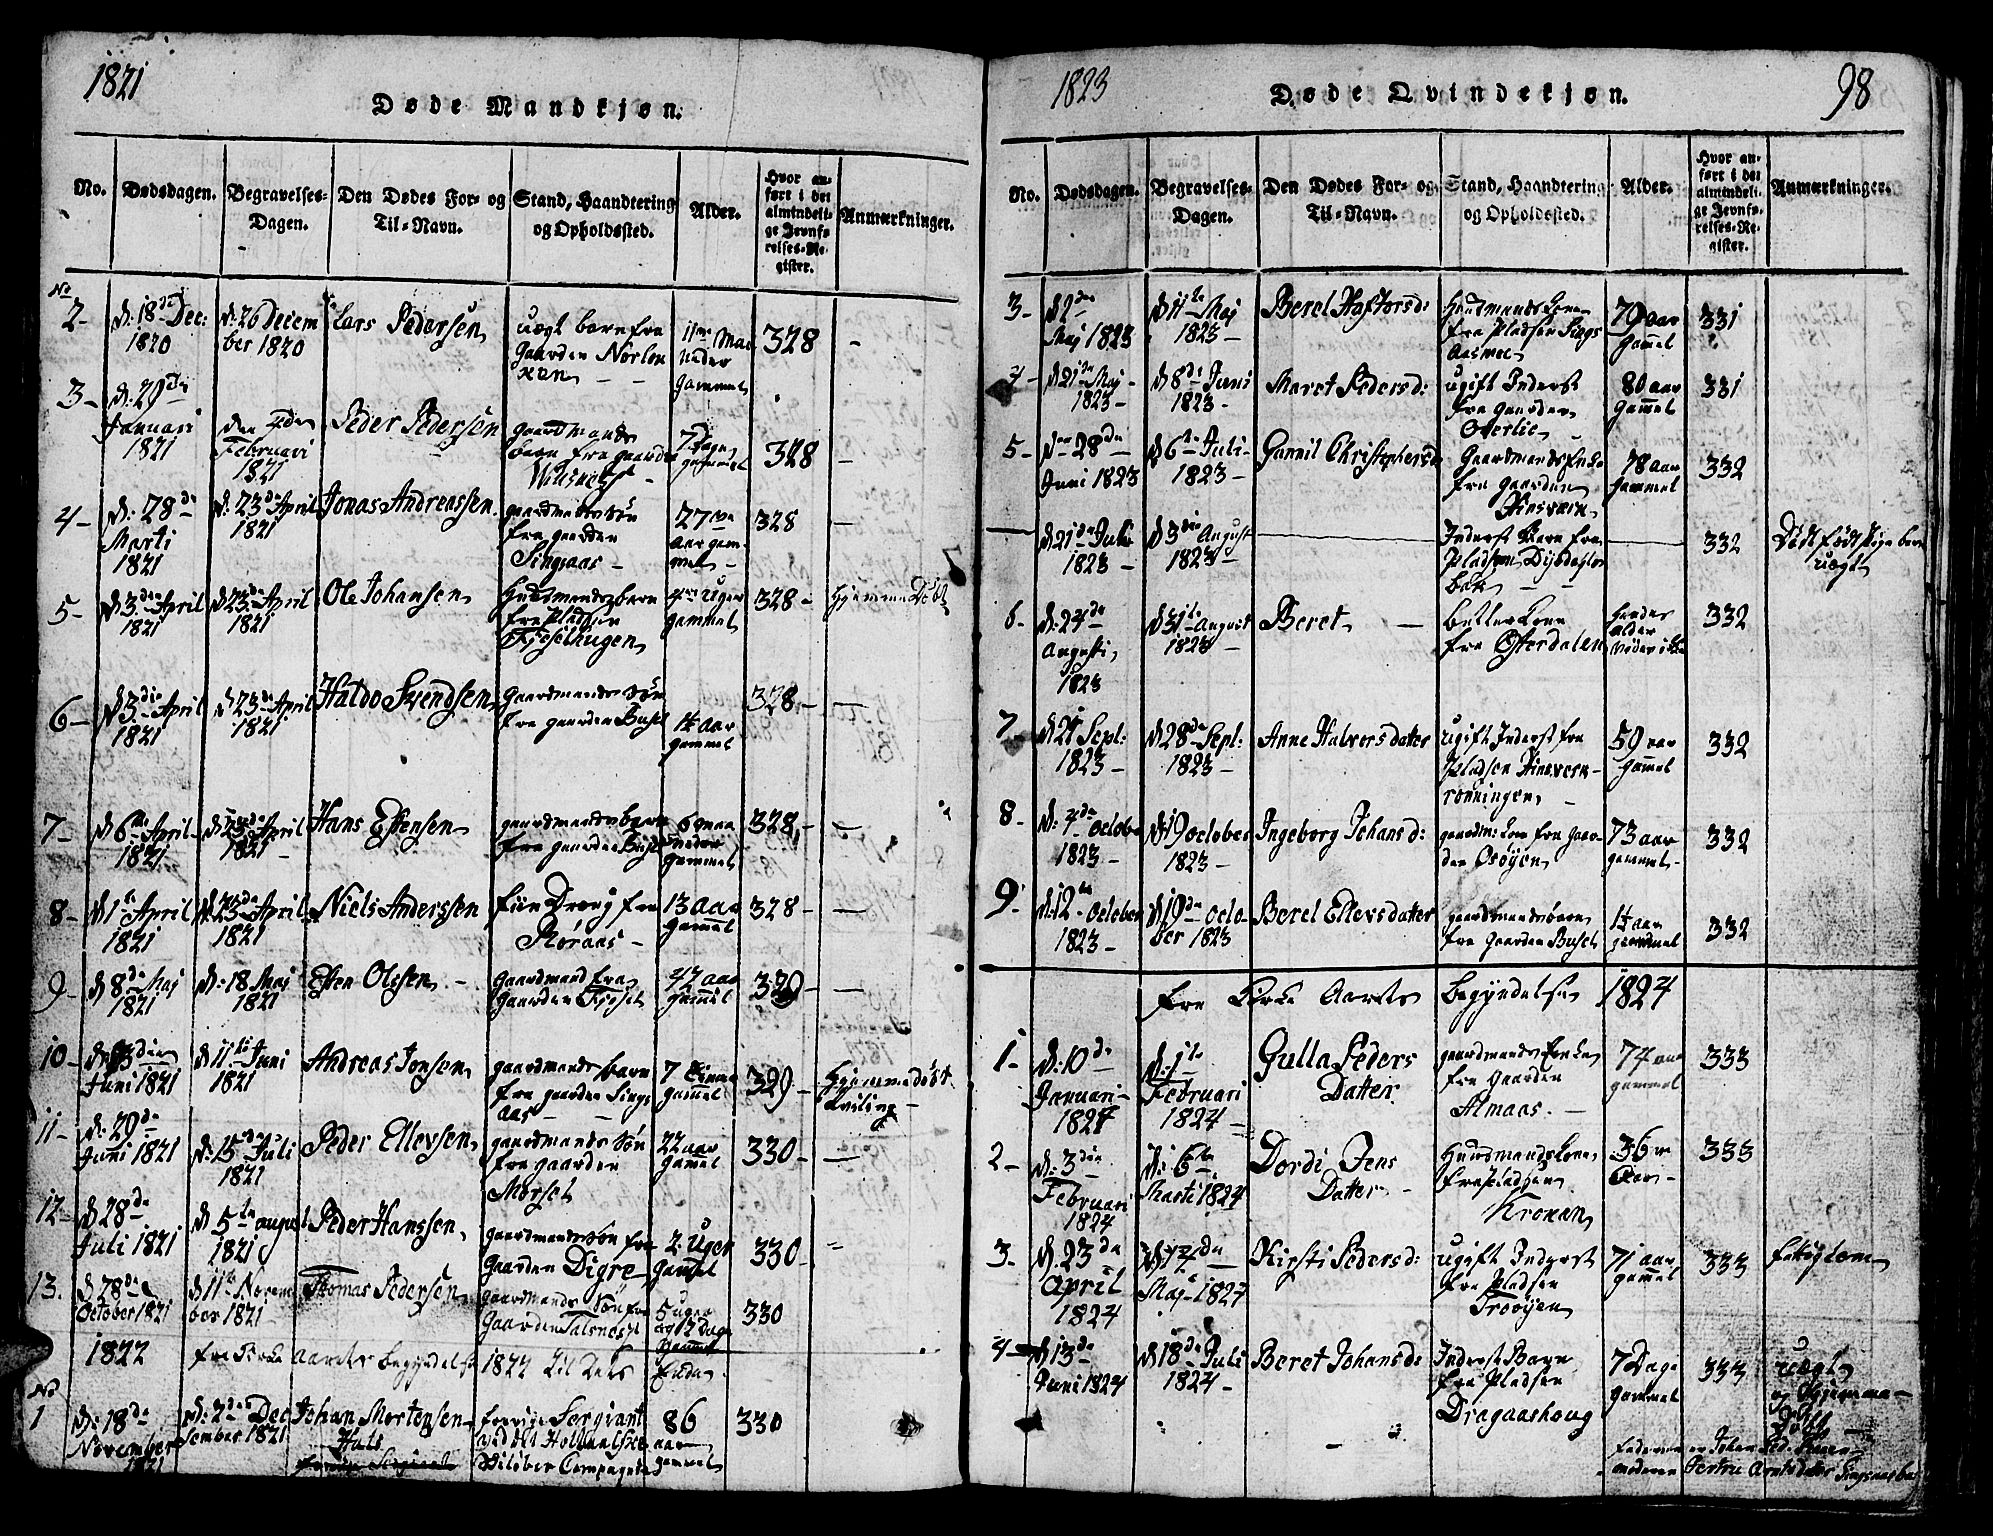 1821
Døde Mandkjøn.
No. Dødsdagen. Begravelses-Dagen. Den Dødes For- og Til-Navn. Stand, Haandtering og Opholdssted. Alder. Hvor anført i det almindelige Jevnførelses-Register. Anmærkninger.
No
2- d: 18de Dec: 1820 d: 26 December 1820 Lars Pedersen uægt barn fra gaarden 11 Maaneder gammel 328 -
3- d: 29de Januari 1821 den Februari 1821 Peder Pedersen gaardmands barn fra gaarden 7 Dage gammel 328 -
4- d: 28de Marti 1821 d: 23de April 1821 Jonas Andreassen gaardmandssøn fra gaarden Singsaas - 27 Aar gammel - 328 -
5- d 3die April 1821 d 23de April 1821 Ole Johansen Huusmandsbarn fra pladsen Fjeselhugen 4 Uger gammel 328 - Hjemme Døbt
6- d 3die April 1821 d 23de April 1821 Haldo Svendsen gaardmandssøn fra gaarden Buset 1½ aar gammel 328 -
7- d 6te April 1821 d 23de April 1821 Hans Estensen gaardmandsbarn fra gaarden Buset 6 maaneder gammel 328 -
8- d 1te April 1821 d 23de April 1821 Niels Anderssen fra Røraas - 13 aar gammel 328 -
9- d 8de Maj 1821 d: 18 Maj 1821 Esten Olssen - gaardmand fra gaarden 47 aar gammel 329 -
10- d 3die Juni 1821 d 11te Juni 1821 Andreas Jonsen gaardmands barn fra gaarden Singsaas - 7 Timer gammel 329 - Hjemmedøbt Tviling
11- d: 29de Juni 1821 d: 15de Juli 1821 Peder Ellevsen gaardmands søn fra gaarden Morset 22 aar gammel 330 -
12- d 28de Juli 1821 d 5te august 1821 Peder Hanssen gaardmandssøn fra Gaarden Digre 2 Uger Gammel 330 -
13. d 28de October 1821 d 11te November 1821 Thomas Pedersen gaardmands søn fra Gaarden Talsnes 5 uger og 12 Dage gammel 330
1822 fra Kirke aarets begyndelse 1822 til dets Ende.
No
1 d: 18de November 1821 d: 2den December 1821 Johan Mortensen Hals Sergiant ved det Holtaalske Compagnie 86 aar gammel 330
1823
Døde Qvindekjøn.
98
No. Dødsdagen. Begravelses-Dagen. Den Dødes For- og Til-Navn. Stand, Haandtering og Opholdssted. Alder. Hvor anført i det almindelige Jevnførelses-Register. Anmærkninger.
3- d 2den Maj 1823 d 11te Maj 1823 - Beret Haftorsd: Huusmands kone fra Pladsen Singsaasmoe 79 aar Gammel 331
4- d: 21de Maj - 1823 - d 8de Juni 1823 - Maret Pedersd: ugift Inderst fra gaarden 80 aar gammel 331
5- d 28de Juni 1823 d 6te Juli - 1823 - Gunnil Christophersd Gaardmands Enke fra gaarden 78 aar gammel 332
- d 21de Juli 1823 - d 3die August 1823 - Inderst Barn fra Pladsen - 332 Dødfødt Pige barn uægt
6- d: 24de Augusti 1823 d 31te August 1823 - Beret - betlerkone fra Østerdalen hendes alder vides ikke 332
7- d 21 Sept: 1823 - d 28de Sept: 1823 - Anne Halvorsdatter ugift Inderst fra Pladsen 59 aar gammel 332
8- d: 7de october 1823 - d 19 october 1823 - Ingeborg Johansd: gaardm: kone fra gaarden Osøyen 73 aar gammel - 332
9- d: 12te october 1823 - d 19de october 1823 Beret Ellevsdatter gaardmandsbarn fra Gaarden Buset 1½ aar gammel 332
fra Kirke Aarets begyndelse 1824
1- d: 10de Januari - 1824 d: 1te Februari 1824 - Gulla Peders Datter gaardmands Enke fra gaarden Almaas - 74 aar gammel 333
2- d: 3die Februari 1824 d: 6te Marti 1824 Dordi Jens Datter - Huusmandskone fra Pladsen Kronan 36 Aar - 333
3- d. 23de April 1824 d 17de Maj - 1824 Kirsti Pedersd: ugift Inderst fra Pladsen Trøøyen 71 aar gammel 333 fatiglem
4- d 13de Juni 1824 d 18de Juli 1824 - Beret Johansd: Inderst Barn fra Pladsen Dragaashoug 7 Dage gammel 333 uægt og Hjemmedøbt
faderen er Johan Ped:
moderen